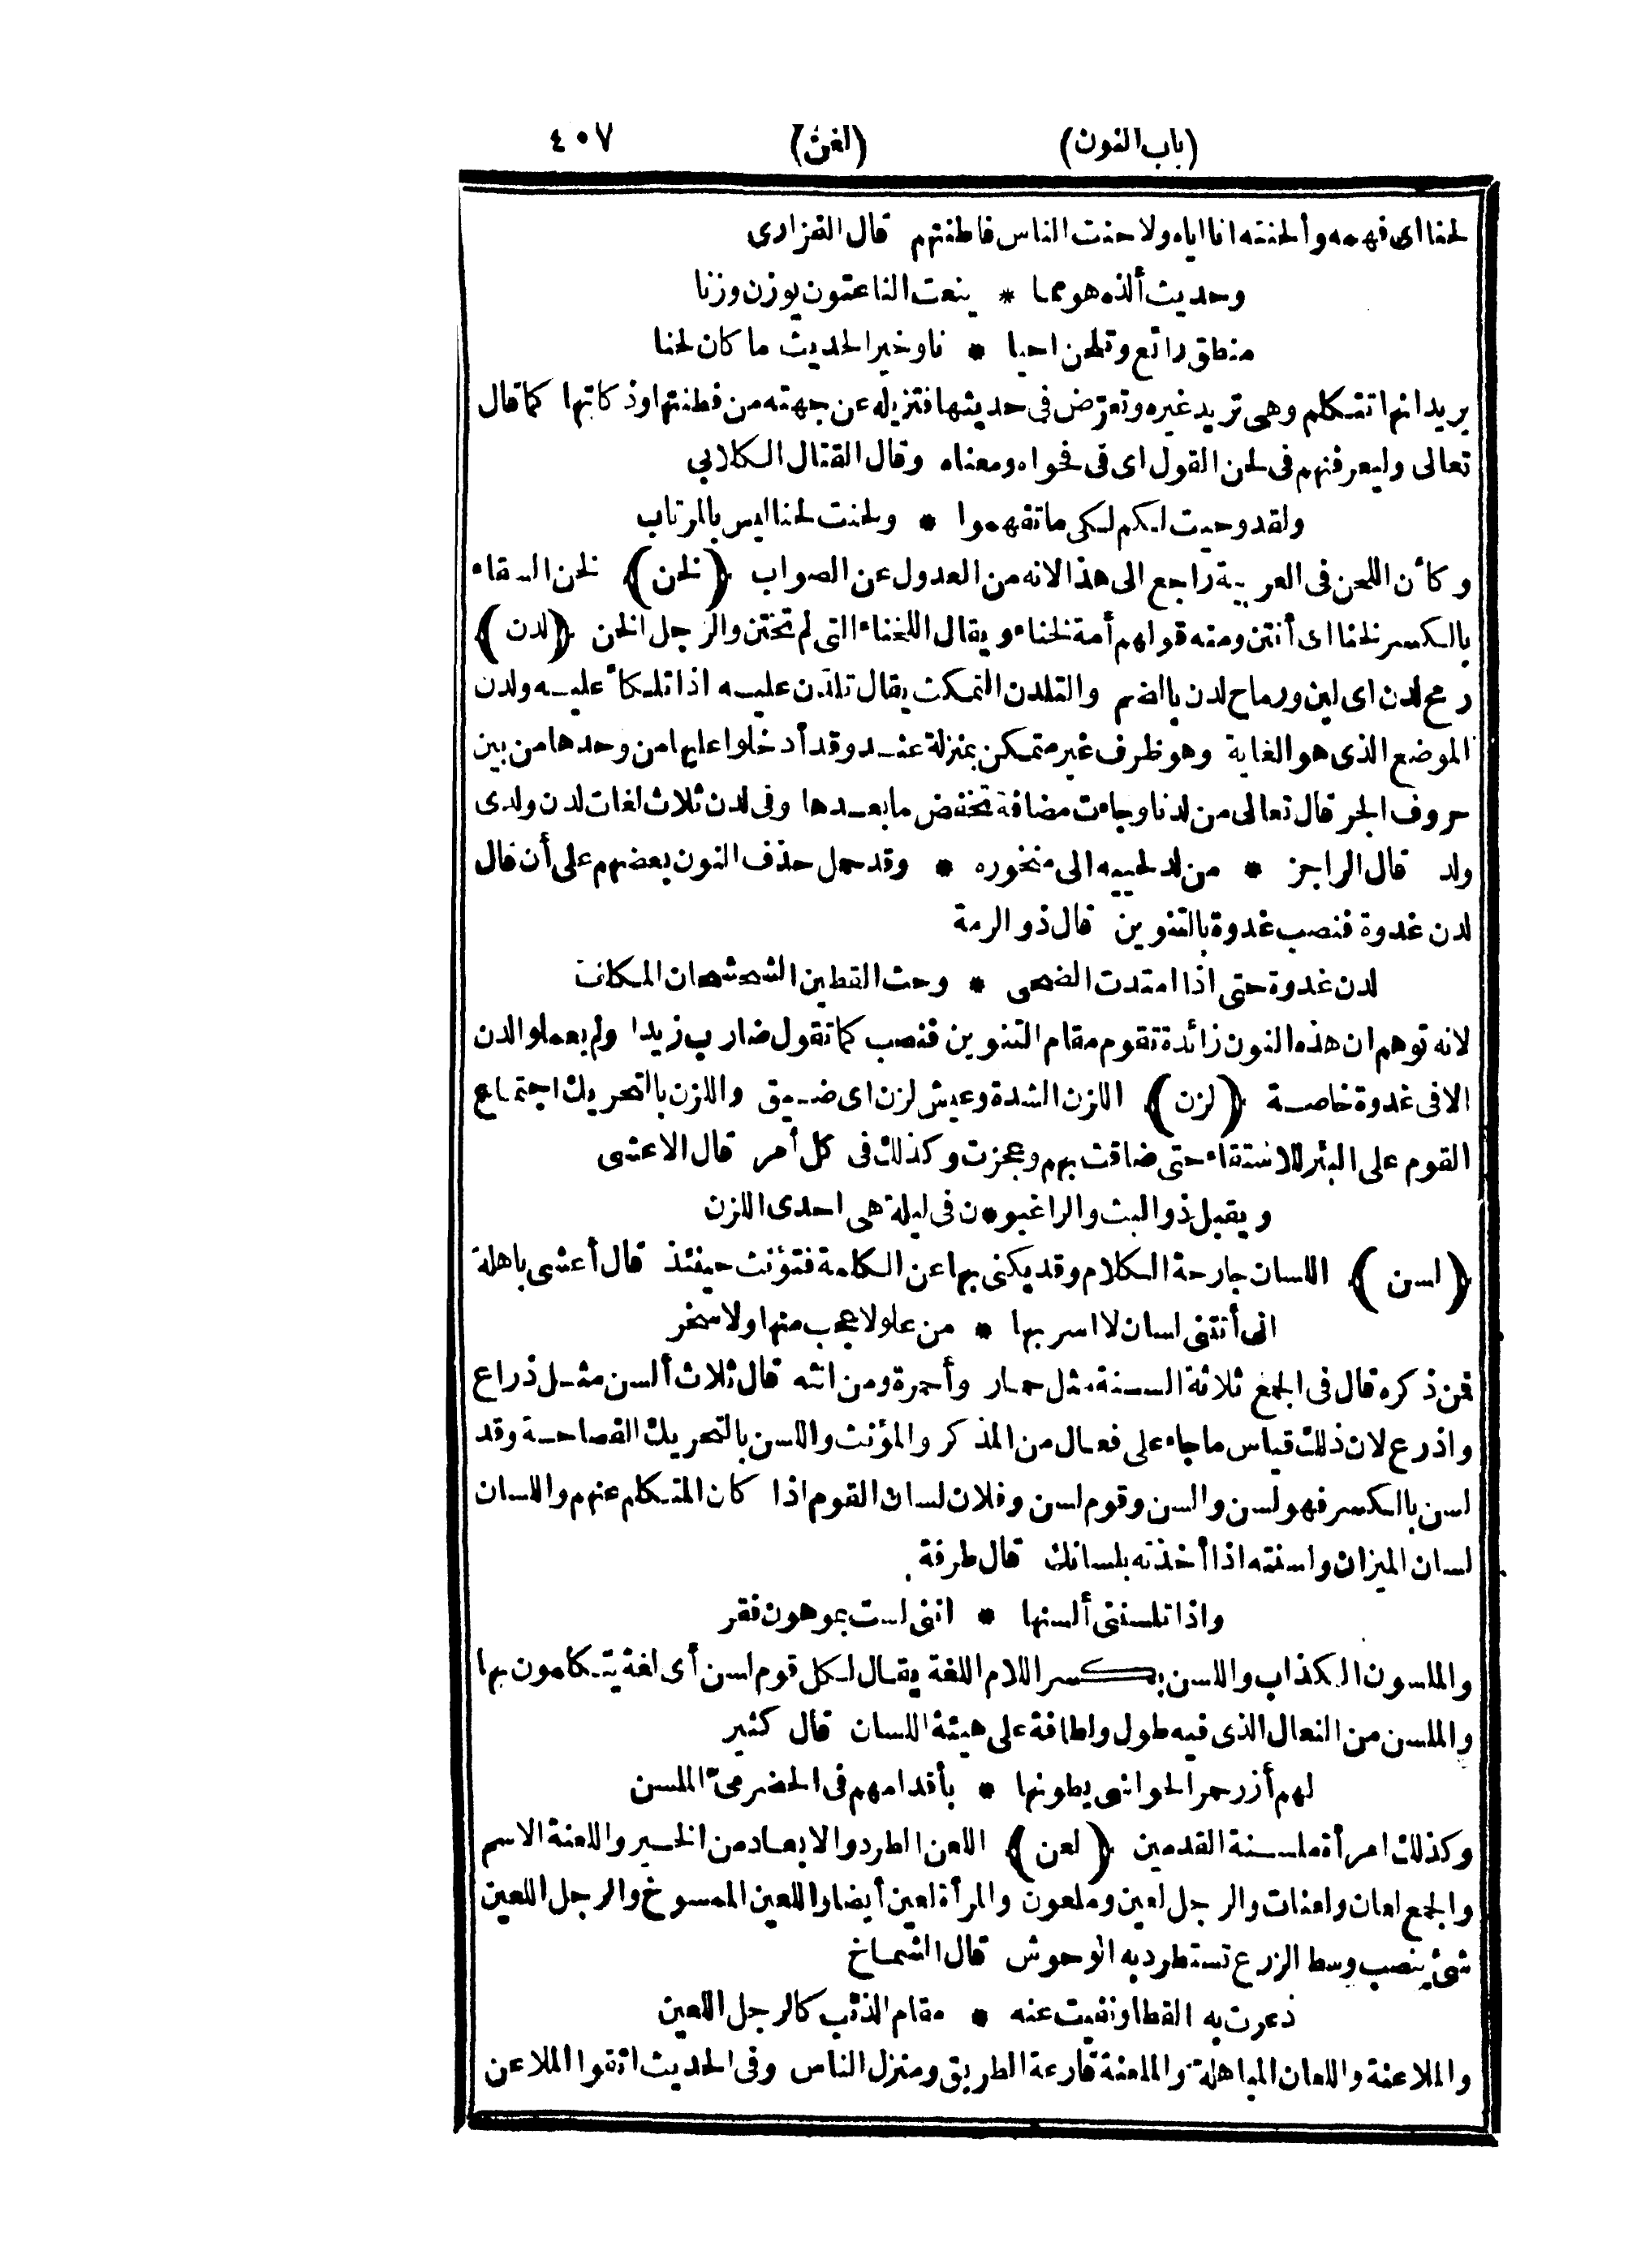 (باب النون) (لغن) ٤٠٧
لحنا اى فهمه وألحنته انا اياه ولاحنت الناس فاطنتهم قال الفزارى
وحديث ألذه هو مما * ينعت الناعتون يوزن وزنا
منطق رائع وتلحن احيا * نا وخير الحديث ما كان لحنا
يريد انها تتكلم وهى تريد غيره وتعرّض فى حديثها فتزيله عن جهته من فطنتها وذكائها كما قال
تعالى ولتعرفنهم فى لحن القول اى فى فحواه ومعناه وقال القتال الكلابي
ولقد وحيت لكم لكى ما تفهموا * ولحنت لحنا ليس بالمرتاب
وكأن اللحن فى العربية راجع الى هذا لانه من العدول عن الصواب ﴿لخن﴾ لخن السقاء
بالكسر لخنا اى أنتن ومنه قولهم أمة لخناء ويقال اللخناء التى لم تختن والرجل الخن ﴿لدن﴾
رمح لدن اى لين ورماح لدن بالضم والتلدن التمكث يقال تلدّن عليه اذا تلكأ عليه ولدن
الموضع الذى هو الغاية وهو ظرف غير متمكن بمنزلة عند وقد أدخلوا عليها من وحدها من بين
حروف الجر قال تعالى من لدنا وجاءت مضافة تخفض ما بعدها وفى لدن ثلاث لغات لدن ولدى
ولد قال الراجز * من لد لحييه الى منخوره * وقد حمل حذف النون بعضهم على أن قال
لدن غدوة فنصب غدوة بالتنوين قال ذو الرمة
لدن غدوة حتى اذا امتدت الضحى * وحث القطين الشحشحان المكلف
لانه توهم ان هذه النون زائدة تقوم مقام التنوين فنصب كما تقول ضارب زيدا ولم يعملوا لدن
الا فى غدوة خاصة ﴿لزن﴾ اللزن الشدة وعيش لزن اى ضيق واللزن بالتحريك اجتماع
القوم على البئر للاستقاء حتى ضاقت بهم وعجزت وكذلك فى كل أمر قال الاعشى
ويقبل ذو البث والراغبو*ن فى ليلة هى احدى اللزن
﴿لسن﴾ اللسان جارحة الكلام وقد يكنى بها عن الكلمة فتؤنث حينئذ قال أعشى باهلة
انى أتتنى لسان لا اسر بها * من علو لا عجب منها ولا سخر
فمن ذكره قال فى الجمع ثلاثة السنة مثل حمار وأحمرة ومن انثه قال ثلاث ألسن مثل ذراع
واذرع لان ذلك قياس ما جاء على فعال من المذكر والمؤنث واللسن بالتحريك الفصاحة وقد
لسن بالكسر فهو لسن والسن وقوم لسن وفلان لسان القوم اذا كان المتكلم عنهم واللسان
لسان الميزان ولسنته اذا أخذته بلسانك قال طرفة
واذا تلسننى ألسنها * اننى لست بموهون فقر
والملسون الكذاب واللسن بكسر اللام اللغة يقال لكل قوم لسن أى لغة يتكلمون بها
والملسن من النعال الذى فيه طول ولطافة على هيئة اللسان قال كثير
لهم أزر حمر الحواشى يطونها * بأقدامهم فى الحضرمىّ الملسن
وكذلك امرأة ملسنة القدمين ﴿لعن﴾ اللعن الطرد والابعاد من الخير واللعنة الاسم
والجمع لعان ولعنات والرجل لعين وملعون والمرأة لعين أيضا واللعين الممسوخ والرجل اللعين
شئ ينصب وسط الزرع تستطرد به الوحوش قال الشماخ
ذعرت به القطا ونفيت عنه * مقام الذئب كالرجل اللعين
والملاعنة واللعان المباهلة والملعنة قارعة الطريق ومنزل الناس وفى الحديث اتقوا الملاعن